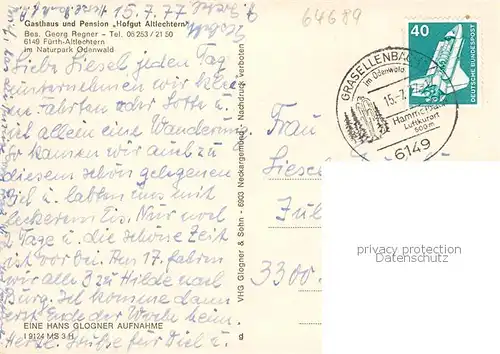 15.7.77
64689
Gasthaus und Pension "Hofgut Altlechtern"
Bes. Georg Regner - Tel. 06253/2150
6149 Fürth-Altlechtern
im Naturpark Odenwald
Liebe Liesel jeden Tag
unternehmen wir kl
eine Fahrten oder Lotte u.
ich allein eine Wanderung
So kamen wir auch zu
diesem schön gelegenen
u. labten uns mit
leckerem Eis. Nur noch
Tage u. die schöne Zeit
ist vorbei. Am 17. fahren
wir alle 3 zu Hilde nach
burg. Ich komme dann
erst Ende der Woche heim.
Herzl. Grüße für Dich u.
EINE HANS GLOGNER AUFNAHME
I 9124 MS 3 H
VHG Glogner & Sohn - 6903 Neckargemünd - Nachdruck verboten
g
Frau
Liesel
3300
GRASELLENBACH
im Odenwald
15.-7.
Luftkurort
500m
6149
40
DEUTSCHE BUNDESPOST
privacy protection
AKM M.